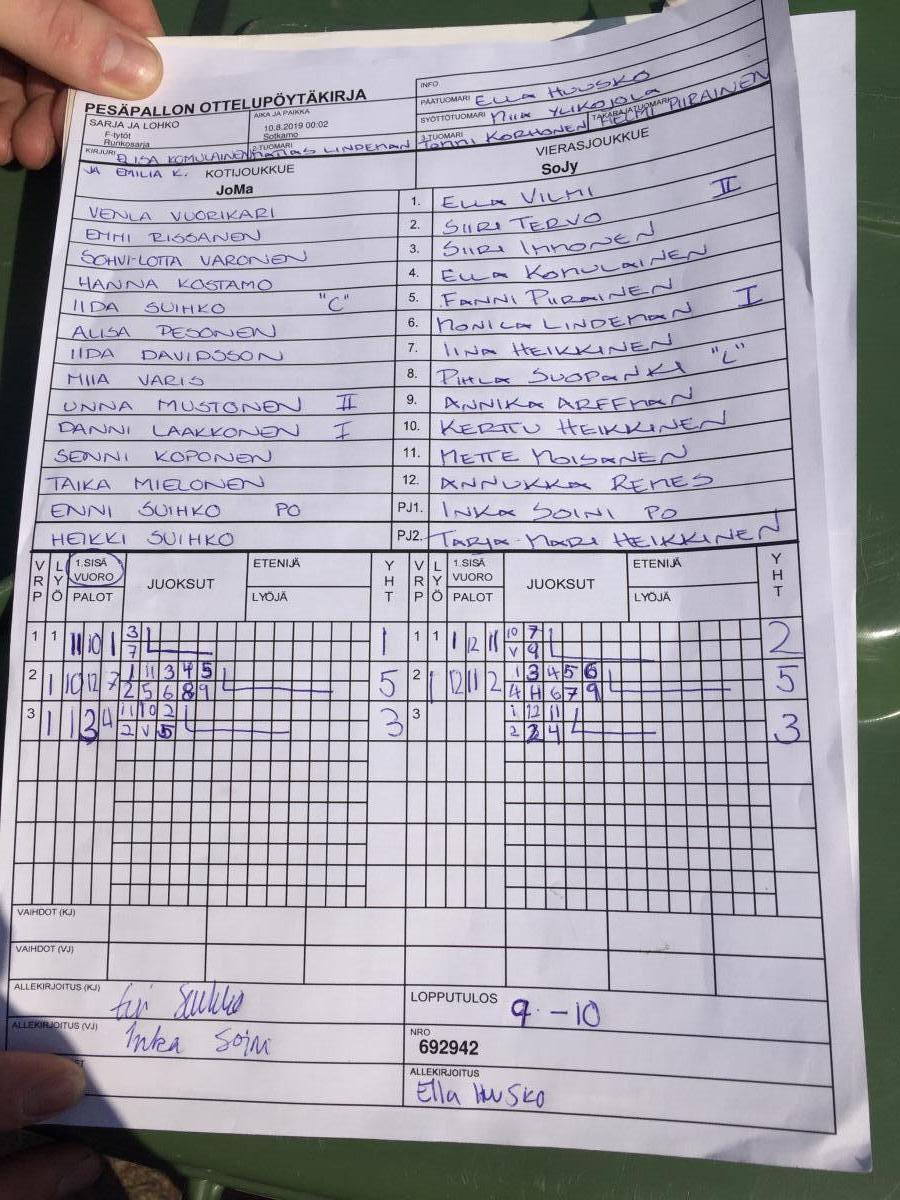 PESÄPALLON OTTELUPÖYTÄKIRJA
INFO
PÄÄTUOMARI ELLA HUUSKO
SARJA JA LOHKO
F-tytöt
Runkosarja
AIKA JA PAIKKA
10.8.2019 00:02
Sotkamo
SYÖTTÖTUOMARI MIIA YLIKOJOLA
TAKARAJATUOMARI HELMI PIIRAINEN
KIRJURI ELISA KOMULAINEN
2-TUOMARI MATIAS LINDEMAN
3-TUOMARI TOMMI KORHONEN
JA EMILIA K. KOTIJOUKKUE
JoMa
VIERASJOUKKUE
SoJy
VENLA VUORIKARI 1. ELLA VILMI II
EMMI RISSANEN 2. SIIRI TERVO
SOHVI-LOTTA VARONEN 3. SIIRI IMMONEN
HANNA KOSTAMO 4. ELLA KOMULAINEN
IIDA SUIHKO "C" 5. FANNI PIIRAINEN
ALISA PESONEN 6. MONICA LINDEMAN I
IIDA DAVIDSSON 7. IINA HEIKKINEN
MIIA VARIS 8. PIHLA SUOPANKI "L"
UNNA MUSTONEN II 9. ANNIKA ARFFMAN
DANNI LAAKKONEN I 10. KERTTU HEIKKINEN
SENNI KOPONEN 11. METTE MOISANEN
TAIKA MIELONEN 12. ANNUKKA REMES
ENNI SUIHKO PO PJ1. INKA SOINI PO
HEIKKI SUIHKO PJ2. TARJA-MARI HEIKKINEN
VRP LYÖ 1.SISÄ VUORO PALOT JUOKSUT ETENIJÄ LYÖJÄ YHT VRP LYÖ 1.SISÄ VUORO PALOT JUOKSUT ETENIJÄ LYÖJÄ YHT
1 1 11 10 1 3 1 1 1 1 12 11 10 7 2
7 V 9
2 1 10 12 7 1 11 3 4 5 5 2 1 12 11 2 1 3 4 5 6 5
2 5 6 8 9 4 H 6 7 9
3 1 1 3 4 11 10 2 3 3 1 12 11 3
2 V 5 2 2 4
VAIHDOT (KJ)
VAIHDOT (VJ)
ALLEKIRJOITUS (KJ)
LOPPUTULOS 9 - 10
ALLEKIRJOITUS (VJ) Inka Soini
NRO
692942
ALLEKIRJOITUS
Ella Huusko